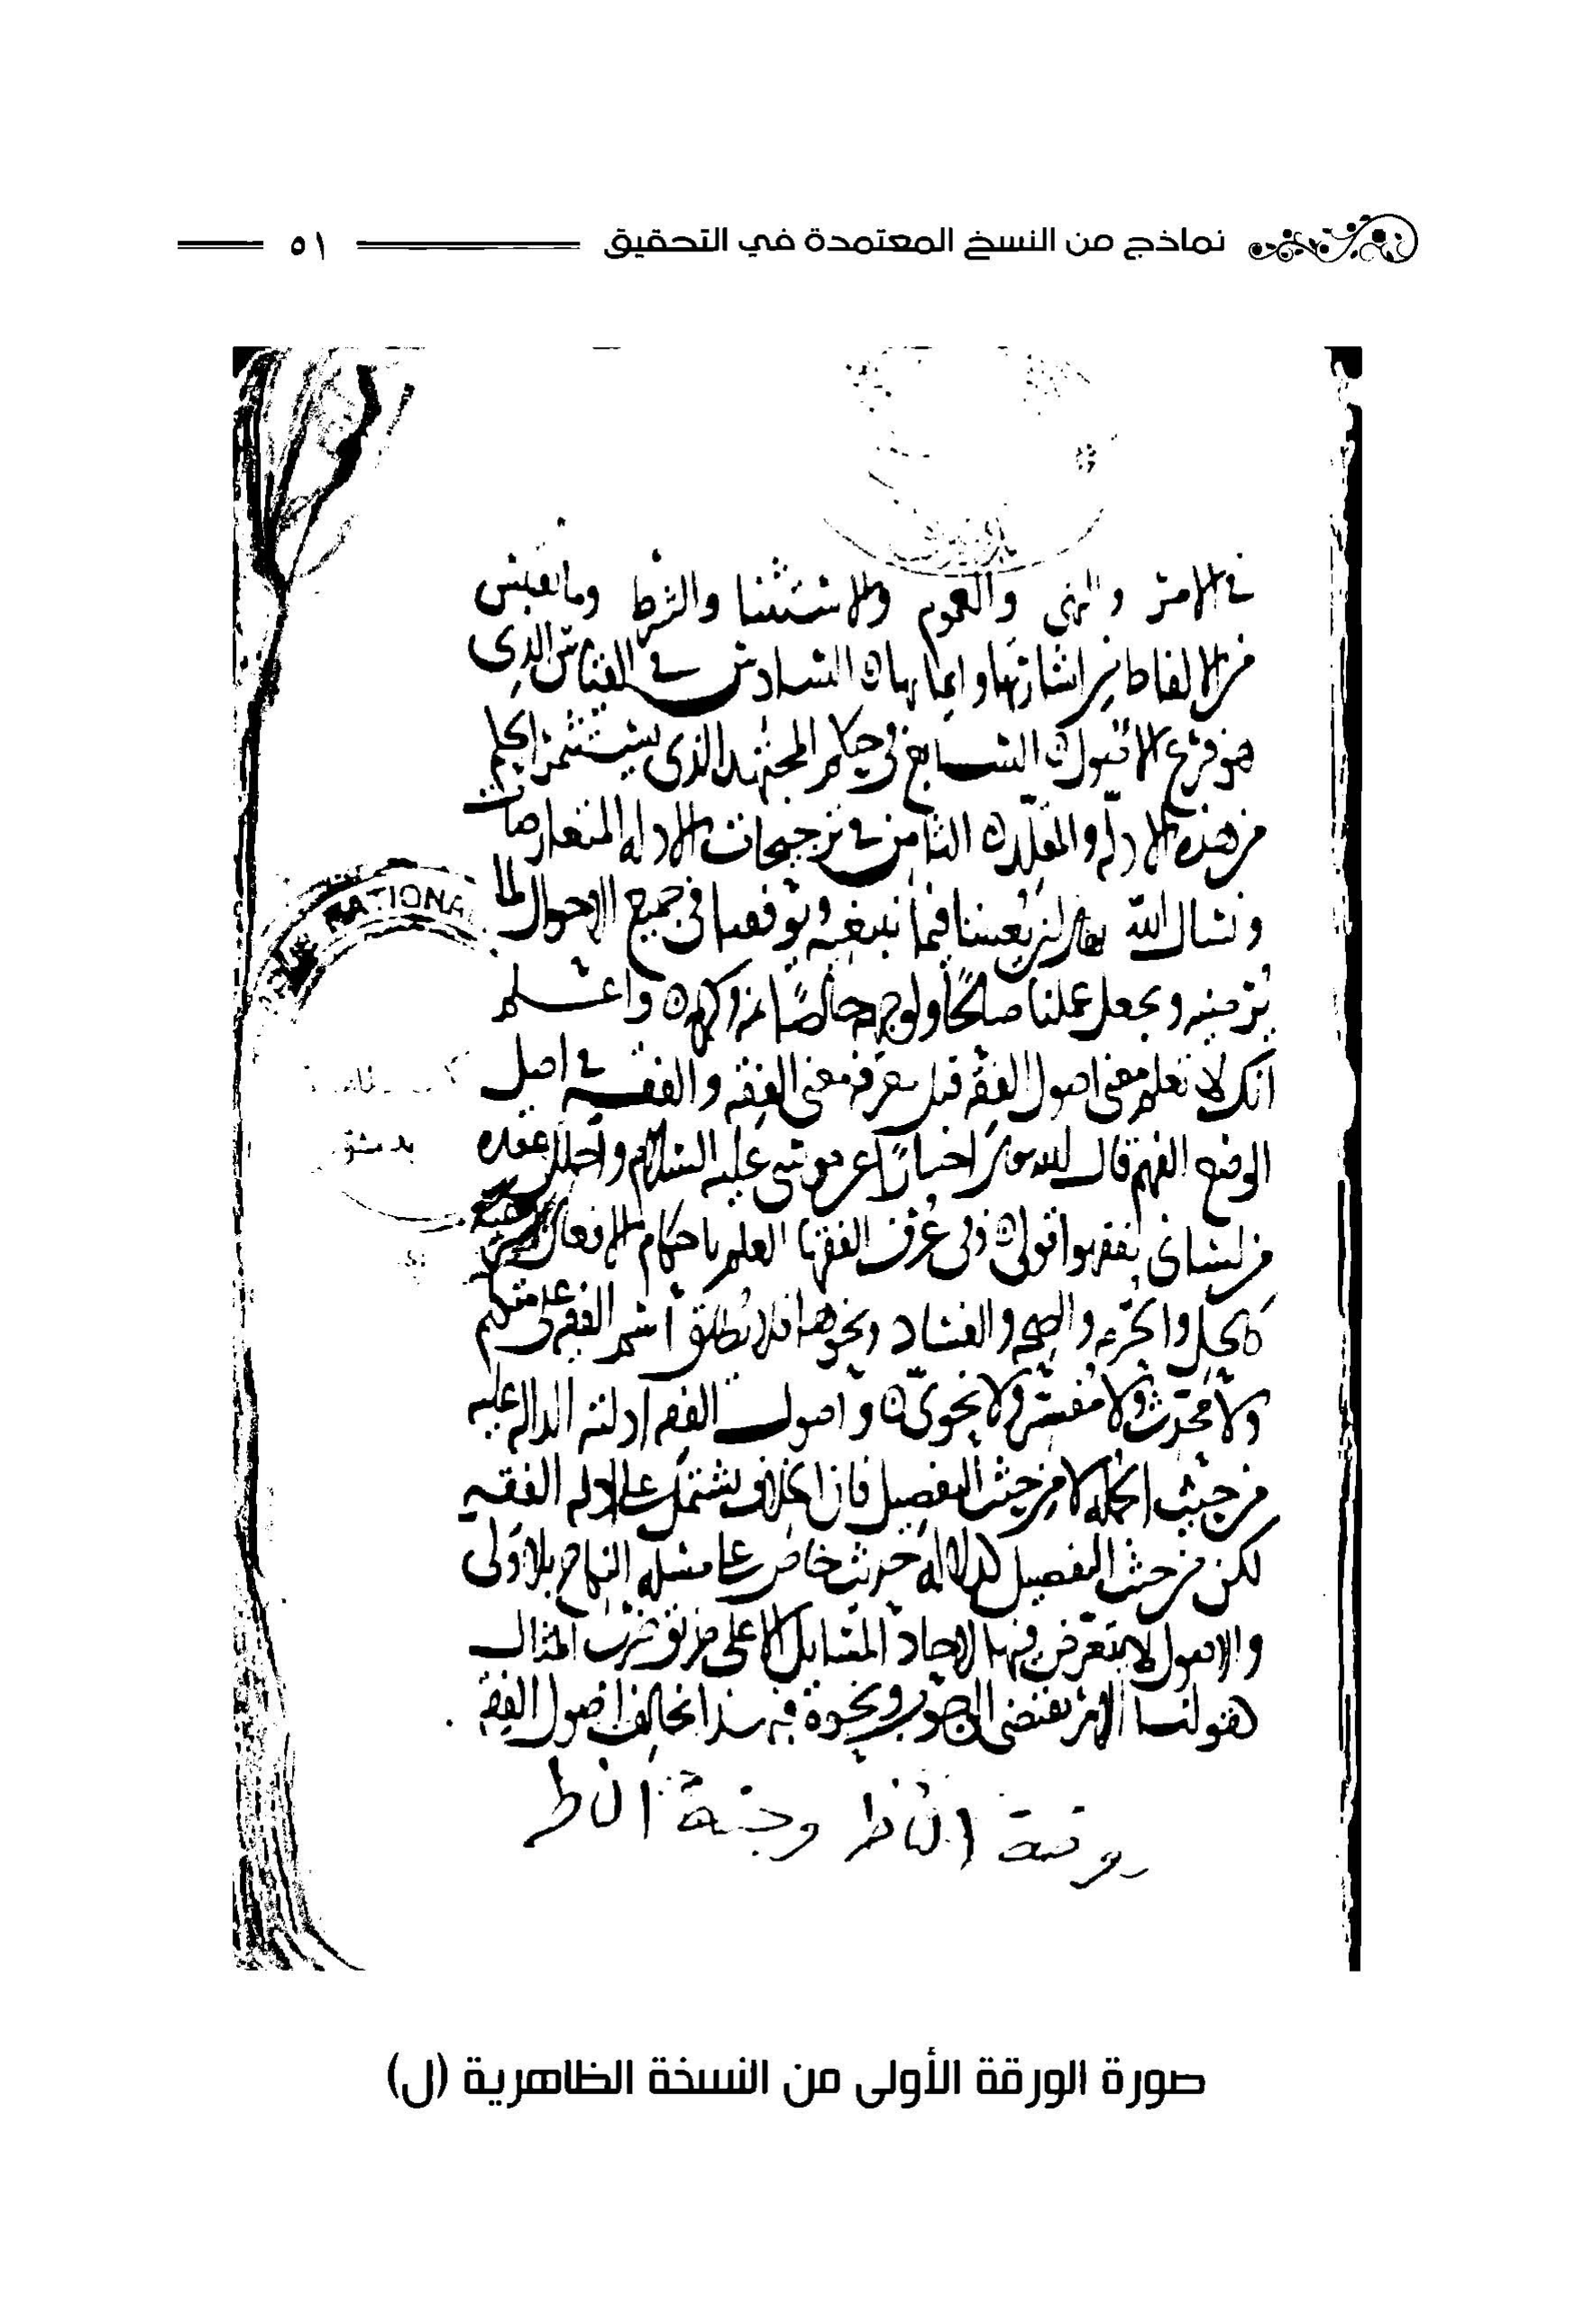 نماذج من النسخ المعتمدة في التحقيق ٥١
في الامر والنهي والعموم والاستثنا والشرط وما يقتبس
من الالفاظ من اشاراتها وايماآتها السادس في القياس الذي
هو فرع الاصول السابع في حكم المجتهد الذي يستثمر الحكم
من هذه الادلة والمقلد الثامن في ترجيحات الادله المتعارضات
ونسال الله تعالى ان يعيننا فيما نبتغيه ويوفقنا في جميع الاحوال لما
يرضيه ويجعل عملنا صالحًا ولوجهه خالصًا بمنه وكرمه واعلم
انك لا تعلم معنى اصول الفقه قبل معرفة معنى الفقه والفقه في اصل
الوضع الفهم قال الله تعالى اخبارًا عن موسى عليه السلام واحلل عقده
من لساني يفقهوا قولي وفي عرف الفقها العلم باحكام الافعال الشرعيه
كالحل والحرمه والصحه والفساد ونحوها فلا يطلق اسم الفقه على متكلم
ولا محدث ولا مفسر ولا نحوي واصول الفقه ادلته الداله عليه
من حيث الجمله لا من حيث التفصيل فان الخلاف يشتمل على ادله الفقه
لكن من حيث التفصيل كدلالة حديث خاص على مسله النكاح بلا ولي
والاصول لا يتعرض فيها لاحاد المسايل الا على طريق ضرب المثال
كقولنا الامر يقتضي الوجوب ونحوه فبهذا يخالف اصول الفقه
روضة الناظر وجنة الناظر
NATIONAL
بدمشق
صورة الورقة الأولى من النسخة الظاهرية (ل)